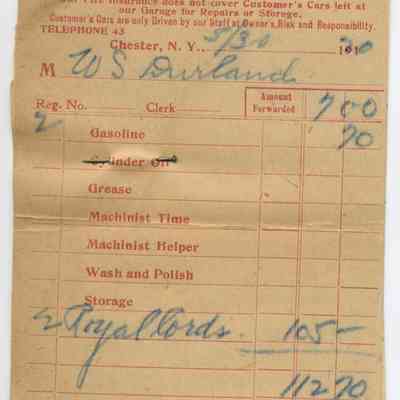 Our Fire Insurance does not cover Customer's Cars left at
our Garage for Repairs or Storage.
Customer's Cars are only Driven by our Staff at Owner's Risk and Responsibility.
TELEPHONE 43
Chester, N. Y., 5/30 1920
M W S Durland
Reg. No. Clerk Amount Forwarded 700
2 Gasoline 70
Cylinder Oil
Grease
Machinist Time
Machinist Helper
Wash and Polish
Storage
2 Royal Cords 105-
11270